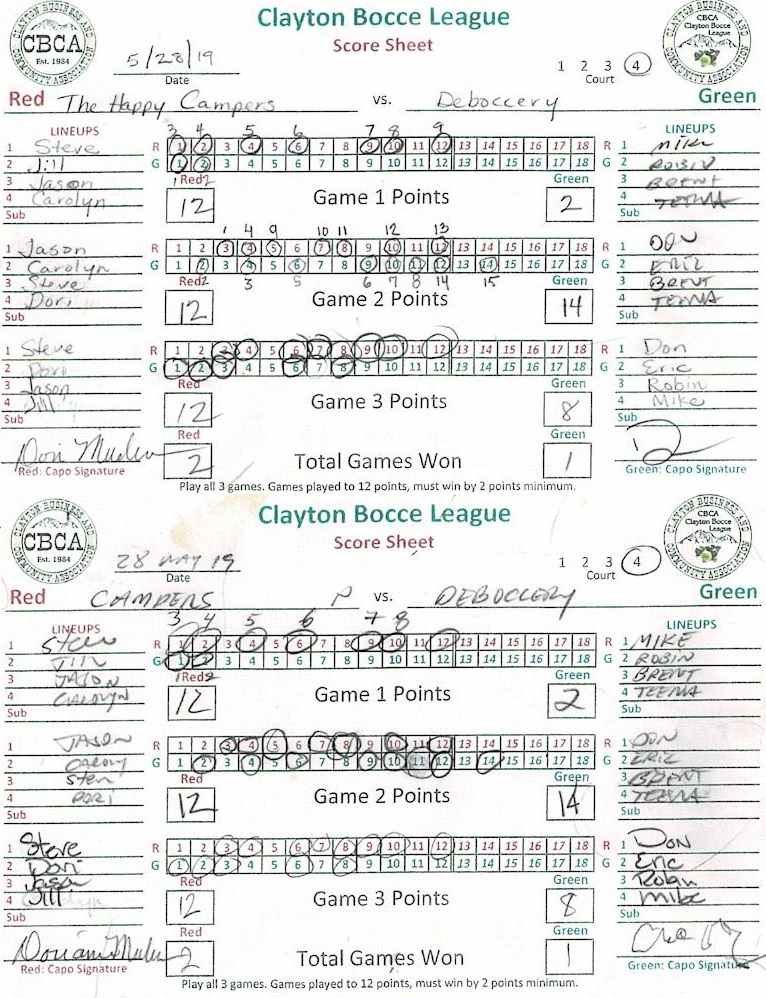 CLAYTON BUSINESS AND COMMUNITY ASSOCIATION
CBCA
Est. 1984
Clayton Bocce League
Score Sheet
CLAYTON BUSINESS AND COMMUNITY ASSOCIATION
CBCA
Clayton Bocce
League
5/28/19
Date
1 2 3 4
Court
Red The Happy Campers vs. Deboccery Green
LINEUPS
1 Steve
2 Jill
3 Jason
4 Carolyn
Sub
3 4 5 6 7 8 9
R 1 2 3 4 5 6 7 8 9 10 11 12 13 14 15 16 17 18 R
G 1 2 3 4 5 6 7 8 9 10 11 12 13 14 15 16 17 18 G
1 Red 2
12
Game 1 Points
Green
2
LINEUPS
1 Mike
2 ROBIN
3 BRENT
4 TEEMA
Sub
1 Jason
2 Carolyn
3 Steve
4 Dori
Sub
1 4 9 10 11 12 13
R 1 2 3 4 5 6 7 8 9 10 11 12 13 14 15 16 17 18 R
G 1 2 3 4 5 6 7 8 9 10 11 12 13 14 15 16 17 18 G
Red 2 3 5 6 7 8 14 15
12
Game 2 Points
Green
14
1 DON
2 ERIC
3 BRENT
4 TEEMA
Sub
1 Steve
2 Dori
3 Jason
4 Jill
Sub
R 1 2 3 4 5 6 7 8 9 10 11 12 13 14 15 16 17 18 R
G 1 2 3 4 5 6 7 8 9 10 11 12 13 14 15 16 17 18 G
Red
12
Game 3 Points
Green
8
1 Don
2 Eric
3 Robin
4 Mike
Sub
Red: Capo Signature
Red
2
Total Games Won
Green
1
Green: Capo Signature
Play all 3 games. Games played to 12 points, must win by 2 points minimum.
CLAYTON BUSINESS AND COMMUNITY ASSOCIATION
CBCA
Est. 1984
Clayton Bocce League
Score Sheet
CLAYTON BUSINESS AND COMMUNITY ASSOCIATION
CBCA
Clayton Bocce
League
28 MAY 19
Date
1 2 3 4
Court
Red CAMPERS vs. DEBOCCERY Green
LINEUPS
1 Steve
2 JILL
3 JASON
4 CAROLYN
Sub
3 4 5 6 7 8
R 1 2 3 4 5 6 7 8 9 10 11 12 13 14 15 16 17 18 R
G 1 2 3 4 5 6 7 8 9 10 11 12 13 14 15 16 17 18 G
1 Red 2
12
Game 1 Points
Green
2
LINEUPS
1 MIKE
2 ROBIN
3 BRENT
4 TEEMA
Sub
1 JASON
2 CAROLY
3 Stev
4 DORI
Sub
R 1 2 3 4 5 6 7 8 9 10 11 12 13 14 15 16 17 18 R
G 1 2 3 4 5 6 7 8 9 10 11 12 13 14 15 16 17 18 G
Red
12
Game 2 Points
Green
14
1 DON
2 ERIC
3 BRENT
4 TEEMA
Sub
1 Steve
2 Dori
3 Jason
4 Jill
Sub
R 1 2 3 4 5 6 7 8 9 10 11 12 13 14 15 16 17 18 R
G 1 2 3 4 5 6 7 8 9 10 11 12 13 14 15 16 17 18 G
Red
12
Game 3 Points
Green
8
1 Don
2 Eric
3 Robin
4 Mike
Sub
Red: Capo Signature
Red
2
Total Games Won
Green
1
Green: Capo Signature
Play all 3 games. Games played to 12 points, must win by 2 points minimum.